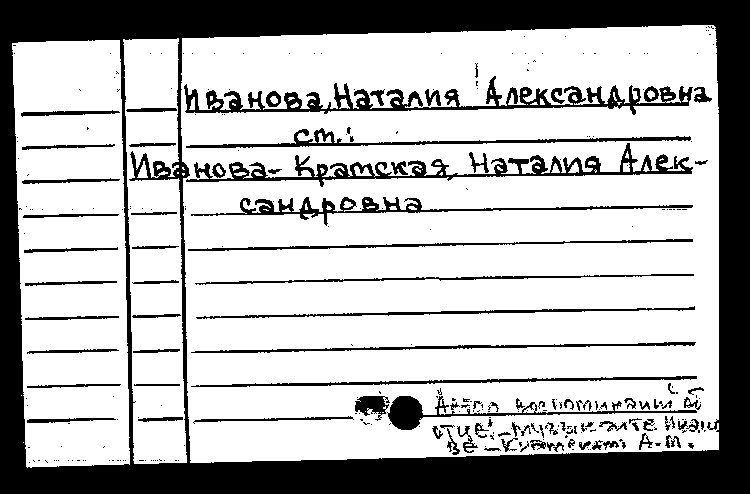 Иванова, Наталия Александровна
ст.:
Иванова-Крамская, Наталия Алек-
сандровна
Автор воспоминаний об
отце - музыканте Ивано-
ве - Крамском А. М.